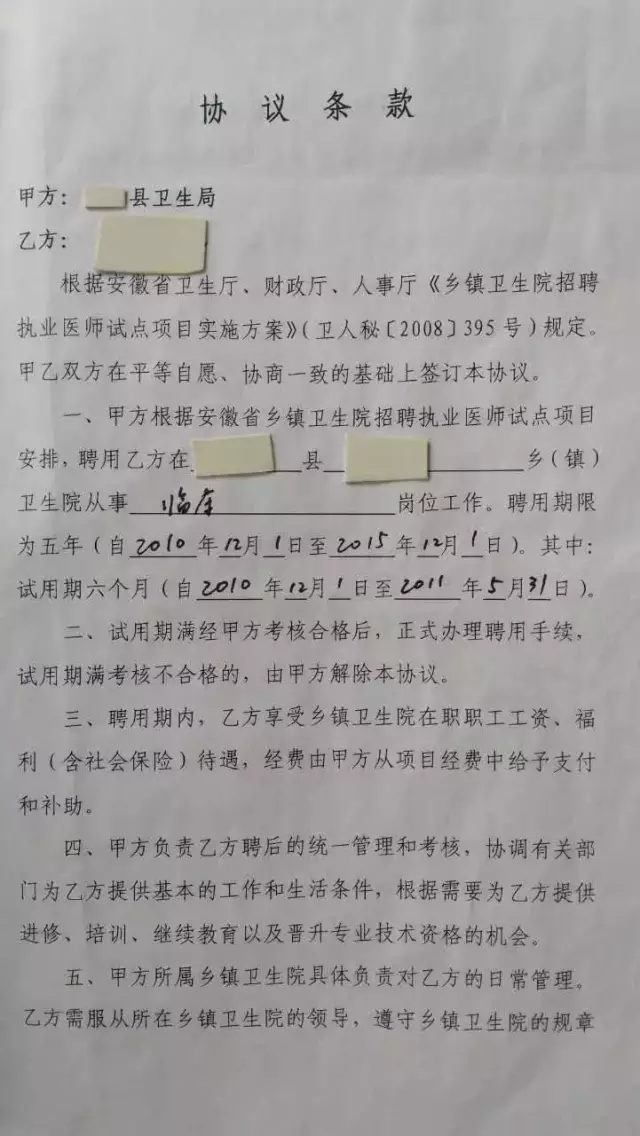 协议条款
甲方：县卫生局
乙方：
根据安徽省卫生厅、财政厅、人事厅《乡镇卫生院招聘
执业医师试点项目实施方案》（卫人秘〔2008〕395号）规定。
甲乙双方在平等自愿、协商一致的基础上签订本协议。
一、甲方根据安徽省乡镇卫生院招聘执业医师试点项目
安排，聘用乙方在县乡（镇）
卫生院从事临床岗位工作。聘用期限
为五年（自2010年12月1日至2015年12月1日）。其中：
试用期六个月（自2010年12月1日至2011年5月31日）。
二、试用期满经甲方考核合格后，正式办理聘用手续，
试用期满考核不合格的，由甲方解除本协议。
三、聘用期内，乙方享受乡镇卫生院在职职工工资、福
利（含社会保险）待遇，经费由甲方从项目经费中给予支付
和补助。
四、甲方负责乙方聘后的统一管理和考核，协调有关部
门为乙方提供基本的工作和生活条件，根据需要为乙方提供
进修、培训、继续教育以及晋升专业技术资格的机会。
五、甲方所属乡镇卫生院具体负责对乙方的日常管理。
乙方需服从所在乡镇卫生院的领导，遵守乡镇卫生院的规章